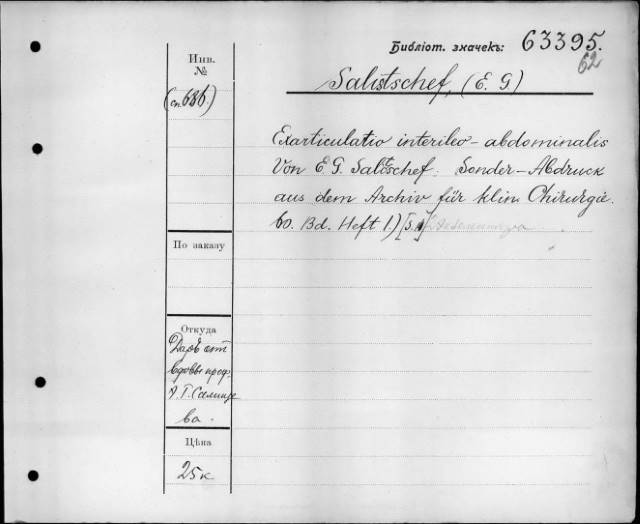 Библіот. значекъ: 63395.
62
Инв.
№
(сп. 686.)
Salistschef, (E. G)
Exarticulatio interileo-abdominalis
Von E. G. Salistschef: Sonder-Abdruck
aus dem Archiv für klin Chirurgie.
60. Bd. Heft 1.) [S.
По заказу
Откуда
Даръ отъ
вдовы проф.
Э. Г. Салище
ва.
Цѣна
25к